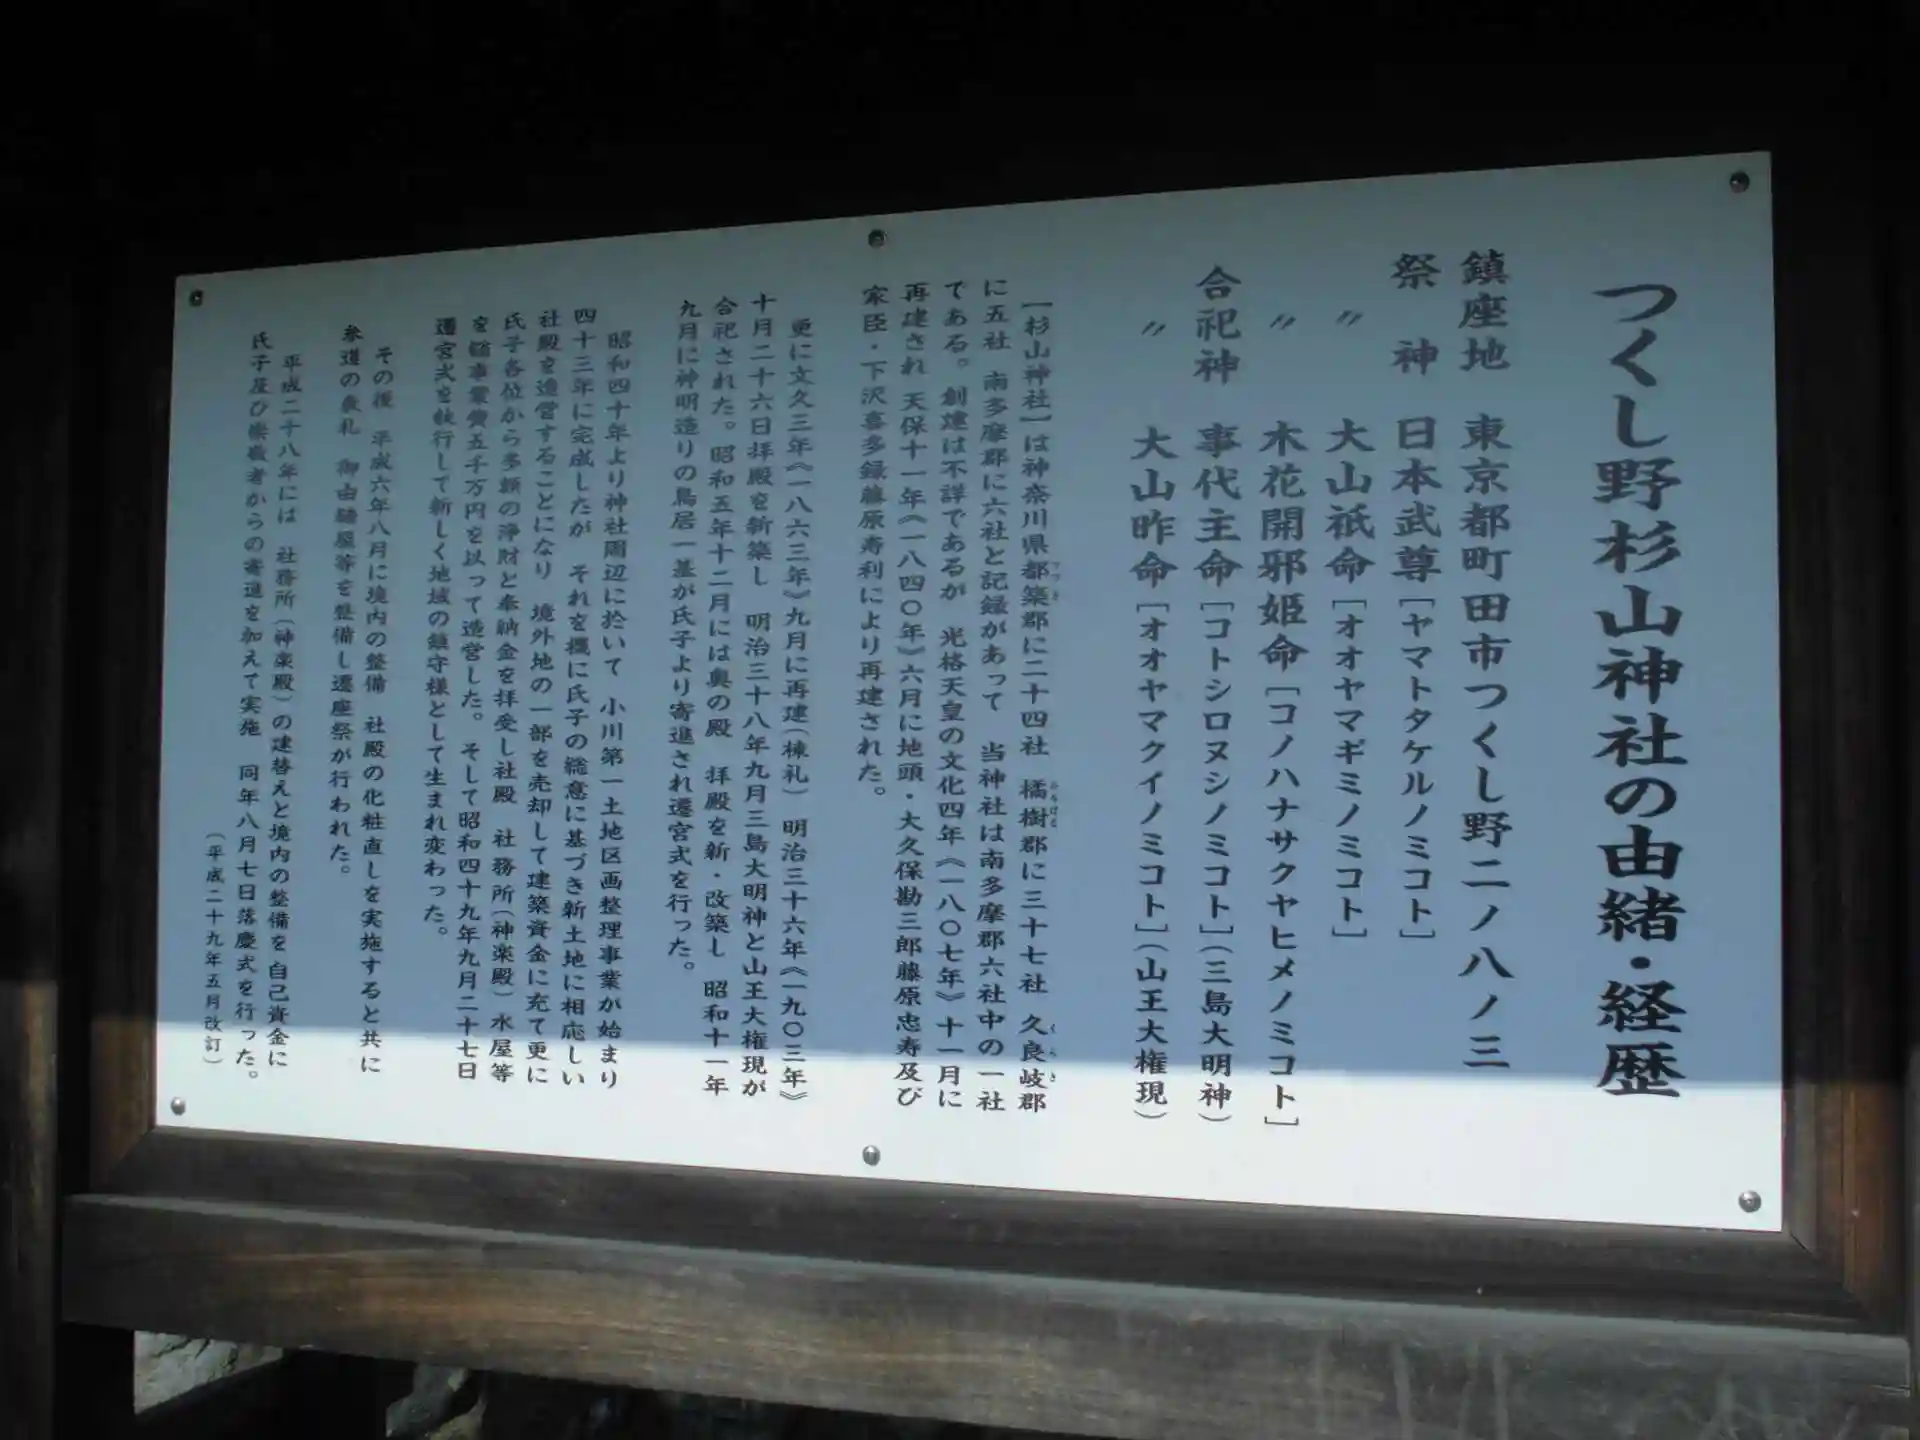 つくし野杉山神社の由緒・経歴
鎮座地 東京都町田市つくし野二ノ八ノ三
祭神 日本武尊［ヤマトタケルノミコト］
〃 大山祇命［オオヤマギミノミコト］
〃 木花開邪姫命［コノハナサクヤヒメノミコト］
合祀神 事代主命［コトシロヌシノミコト］（三島大明神）
〃 大山昨命［オオヤマクイノミコト］（山王大権現）
［杉山神社］は神奈川県都築郡に二十四社 橘樹郡に三十七社 久良岐郡
に五社 南多摩郡に六社と記録があって 当神社は南多摩郡六社中の一社
である。創建は不詳であるが 光格天皇の文化四年《一八〇七年》十一月に
再建され 天保十一年《一八四〇年》六月に地頭・大久保勘三郎藤原忠寿及び
家臣・下沢喜多録藤原寿利により再建された。
更に文久三年《一八六三年》九月に再建（棟札） 明治三十六年《一九〇三年》
十月二十六日拝殿を新築し 明治三十八年九月三島大明神と山王大権現が
合祀された。昭和五年十二月には奥の殿 拝殿を新・改築し 昭和十一年
九月に神明造りの鳥居一基が氏子より寄進され遷宮式を行った。
昭和四十年より神社周辺に於いて 小川第一土地区画整理事業が始まり
四十三年に完成したが それを機に氏子の総意に基づき新土地に相応しい
社殿を造営することになり 境外地の一部を売却して建築資金に充て更に
氏子各位から多額の浄財と奉納金を拝受し社殿 社務所（神楽殿）水屋等
を総事業費五千万円を以って造営した。そして昭和四十九年九月二十七日
遷宮式を執行して新しく地域の鎮守様として生まれ変わった。
その後 平成六年八月に境内の整備 社殿の化粧直しを実施すると共に
参道の敷札 御由緒屋等を整備し遷座祭が行われた。
平成二十八年には 社務所（神楽殿）の建替えと境内の整備を自己資金に
氏子及び崇敬者からの寄進を加えて実施 同年八月七日落慶式を行った。
（平成二十九年五月改訂）